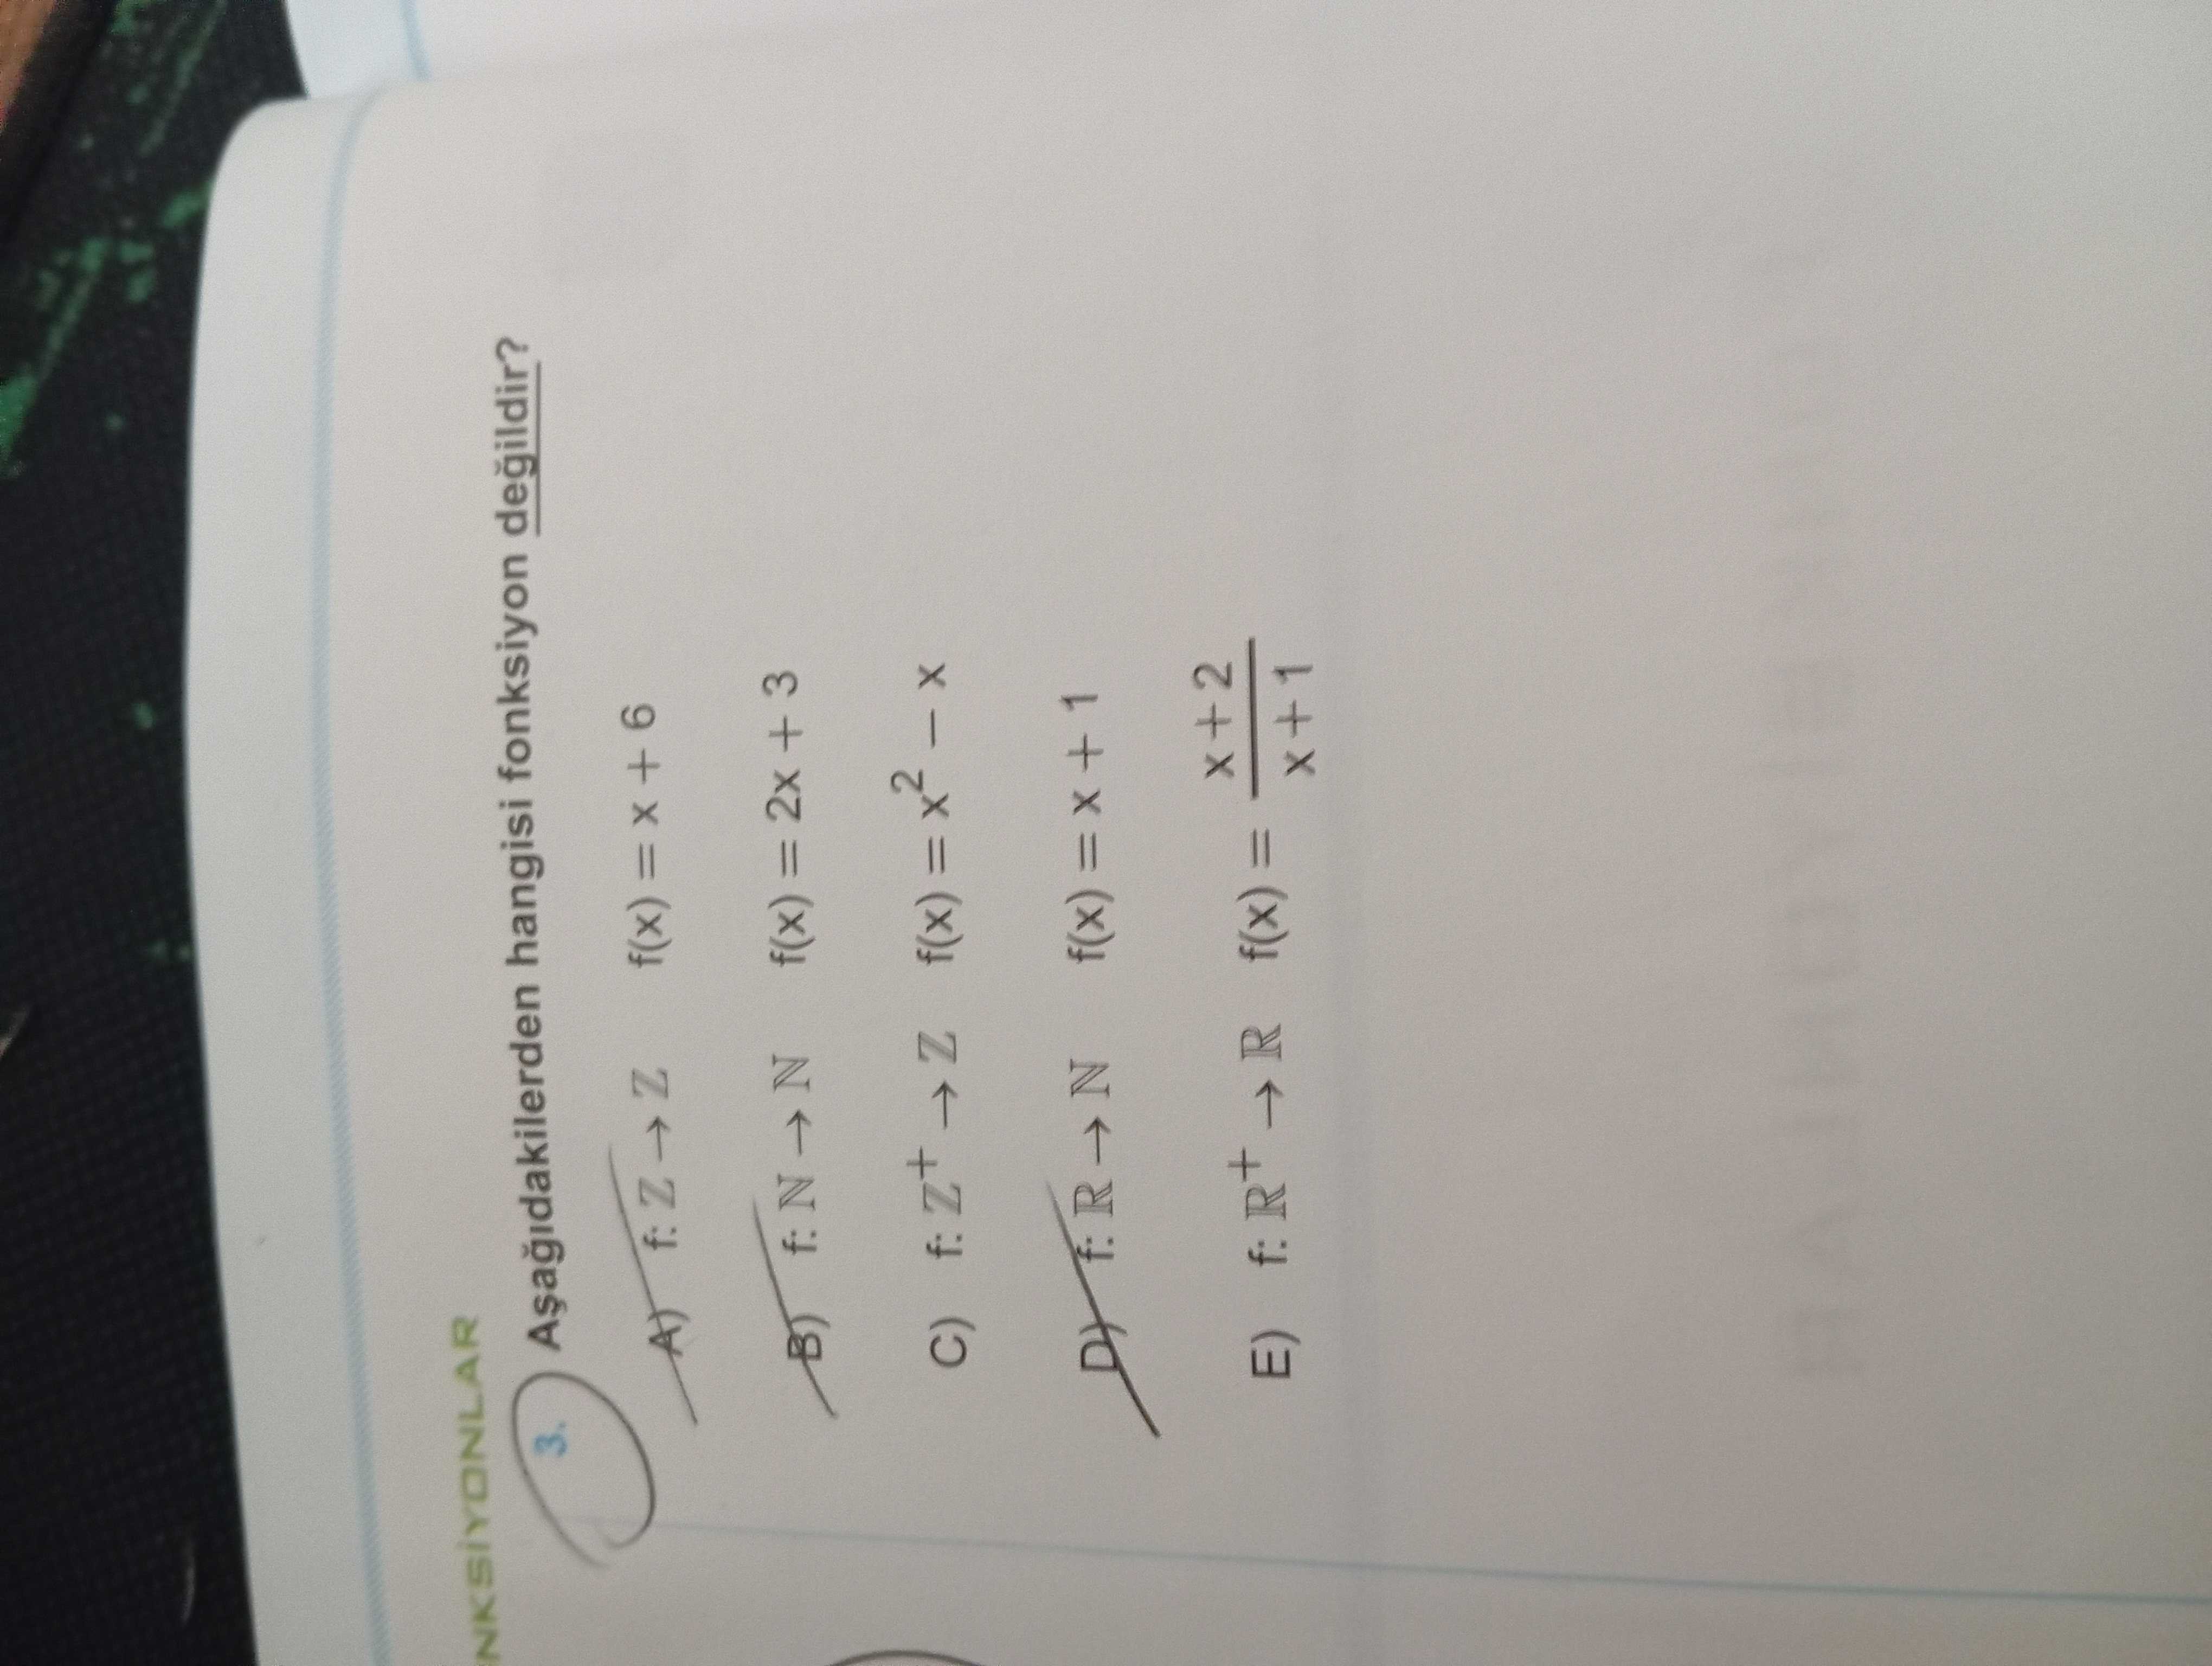 NKSİYONLAR
3. Aşağıdakilerden hangisi fonksiyon değildir?
A) f: ℤ → ℤ f(x) = x + 6
B) f: ℕ → ℕ f(x) = 2x + 3
C) f: ℤ⁺ → ℤ f(x) = x² − x
D) f: ℝ → ℕ f(x) = x + 1
E) f: ℝ⁺ → ℝ f(x) = x + 2 / x + 1